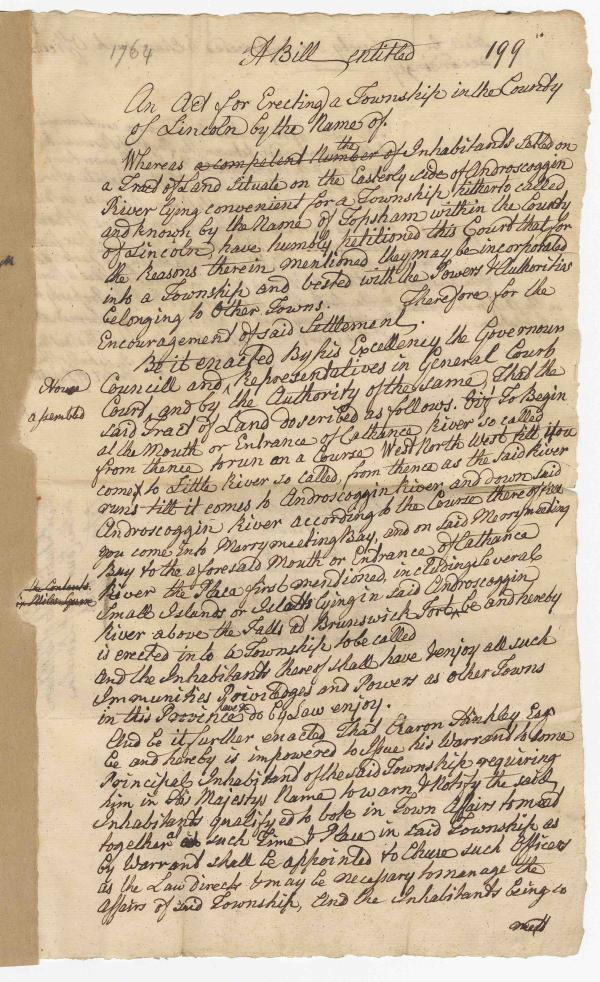 1764
A Bill entitled
199
An Act for Erecting a Township in the County
of Lincoln by the Name of.
Whereas a competent Number of the Inhabitants settled on
a Tract of Land Situate on the Easterly side of Androscoggin
River lying convenient for a Township hitherto called
and known by the Name of Topsham within the County
of Lincoln, have humbly petitioned this Court that for
the Reasons therein mentioned they may be incorporated
into a Township and vested with the Powers & Authorities
belonging to Other Towns. Therefore for the
Encouragement of said Settlement.
Be it enacted By his Excellency the Governour
Councill and ^ Representatives in General Court
House
assembled
Court, and by the Authority of the same, That the
said Tract of Land described as follows. Viz To Begin
at the Mouth or Entrance of Cathance River so called
from thence to run on a Course West North West till you
come to Little River so called, from thence as the said River
runs till it comes to Androscoggin River, and down said
Androscoggin River according to the Course there of till
you come into Merrymeeting Bay, and on said Merrymeeting
Bay to the aforesaid Mouth or Entrance of Cathance
River the Place first mentioned, including several
the Contents
Miles Square
Small Islands or Islotts lying in said Androscoggin
River above the Falls at Brunswick Fort ^ be and hereby
is erected into a Township to be called
and the Inhabitants thereof shall have & enjoy all such
Immunities Priviledges and Powers as other Towns
in this Province have & do by Law enjoy.
And be it further enacted That Aaron Hinkley Esqr
be and hereby is impowered to Issue his Warrant to some
Principal Inhabitant of the said Township requiring
him in his Majestys Name to warn & Notify the said
Inhabitants qualifyed to vote in Town Affairs to meet
together at such Time & Place in said Township as
by Warrant shall be appointed to Chuse such Officers
as the Law directs & may be necessary to manage the
Affairs of said Township, And the Inhabitants being so
mett